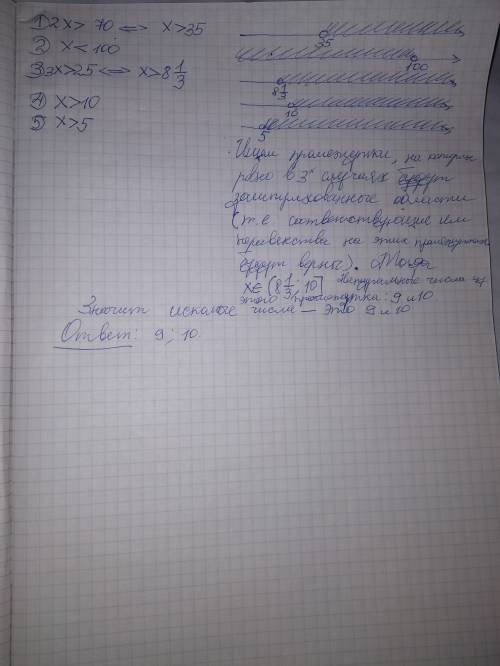 ① 2x > 70 ⟺ x > 35
② x < 100
③ 3x > 25 ⟺ x > 8 1/3
④ x > 10
⑤ x > 5
35
100
8 1/3
10
5
Ищем промежутки, на которых
ровно в 3х случаях будут
заштрихованные области
(т.е. соответствующие им
неравенства на этих промежутках
будут верны). Тогда
x ∈ (8 1/3; 10] Натуральные числа из
этого промежутка: 9 и 10
Значит искомые числа — это 9 и 10.
Ответ: 9; 10.